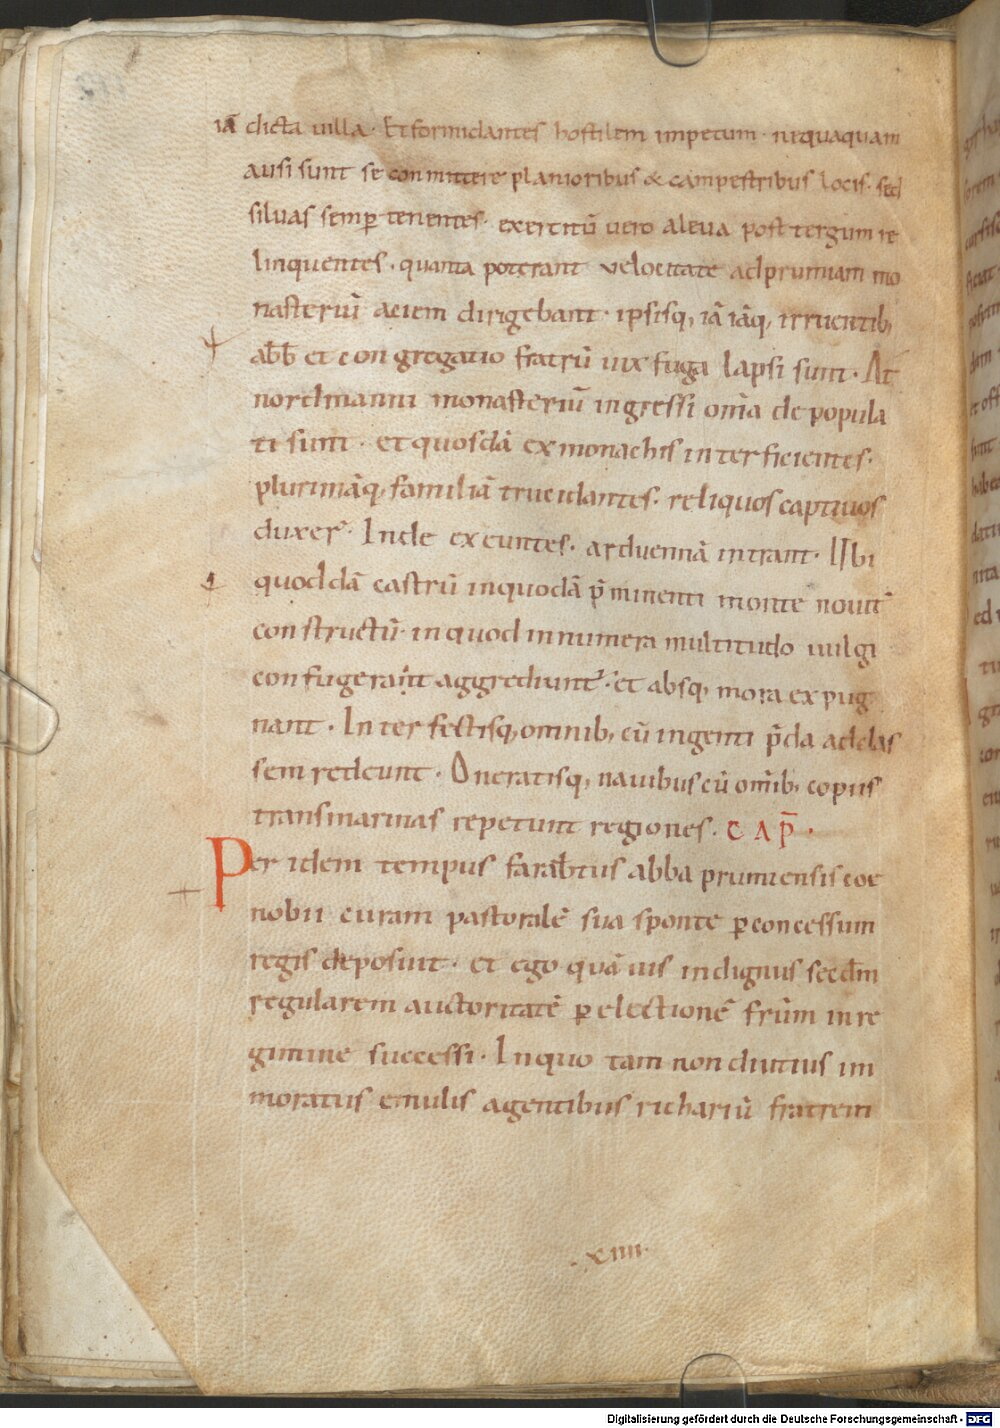 iā dicta uilla· Et formidantes hostilem impetum· nequaquam
ausi sunt se conmittere planioribus & campestribus locis· sed
siluas semp̄ tenentes· exercitū uero aleua post tergum re
linquentes· quanta poterant velocitate adprumiam mo
nasteriū aciem dirigebant· ipsisq; iā iāq; irruentib;
abb̄ et congregatio fratrū uix fuga lapsi sunt· At
nordmanni monasteriū ingressi om̄ia depopula
ti sunt· et quosdā ex monachis interficientes·
plurimāq; familiā trucidantes· reliquos captiuos
duxer̄· Inde exeuntes· arduennā intrant· Ubi
quoddā castrū inquodā p̄minenti monte nouit̄
constructū· in quod innumera multitudo uulgi
confugerant aggrediunt᷑· et absq; mora expug
nant· Interfectisq; omnib; cū ingenti p̄da adclas
sem redeunt· Oneratisq; nauibus cū om̄ib; copiis
transmarinas repetunt regiones· CAP̄·
Per idem tempus farab̄tus abba prumiensis coe
nobii curam pastoralē sua sponte ꝑ concessum
regis deposiut· et ego quā uis indignus secd̄m
regularem auctoritatē ꝑ electionē fr̄um in re
gimine successi· In quo tam̄ non diutius im
moratus emulis agentibus richariū fratrem
·xiiii·
Digitalisierung gefördert durch die Deutsche Forschungsgemeinschaft - DFG